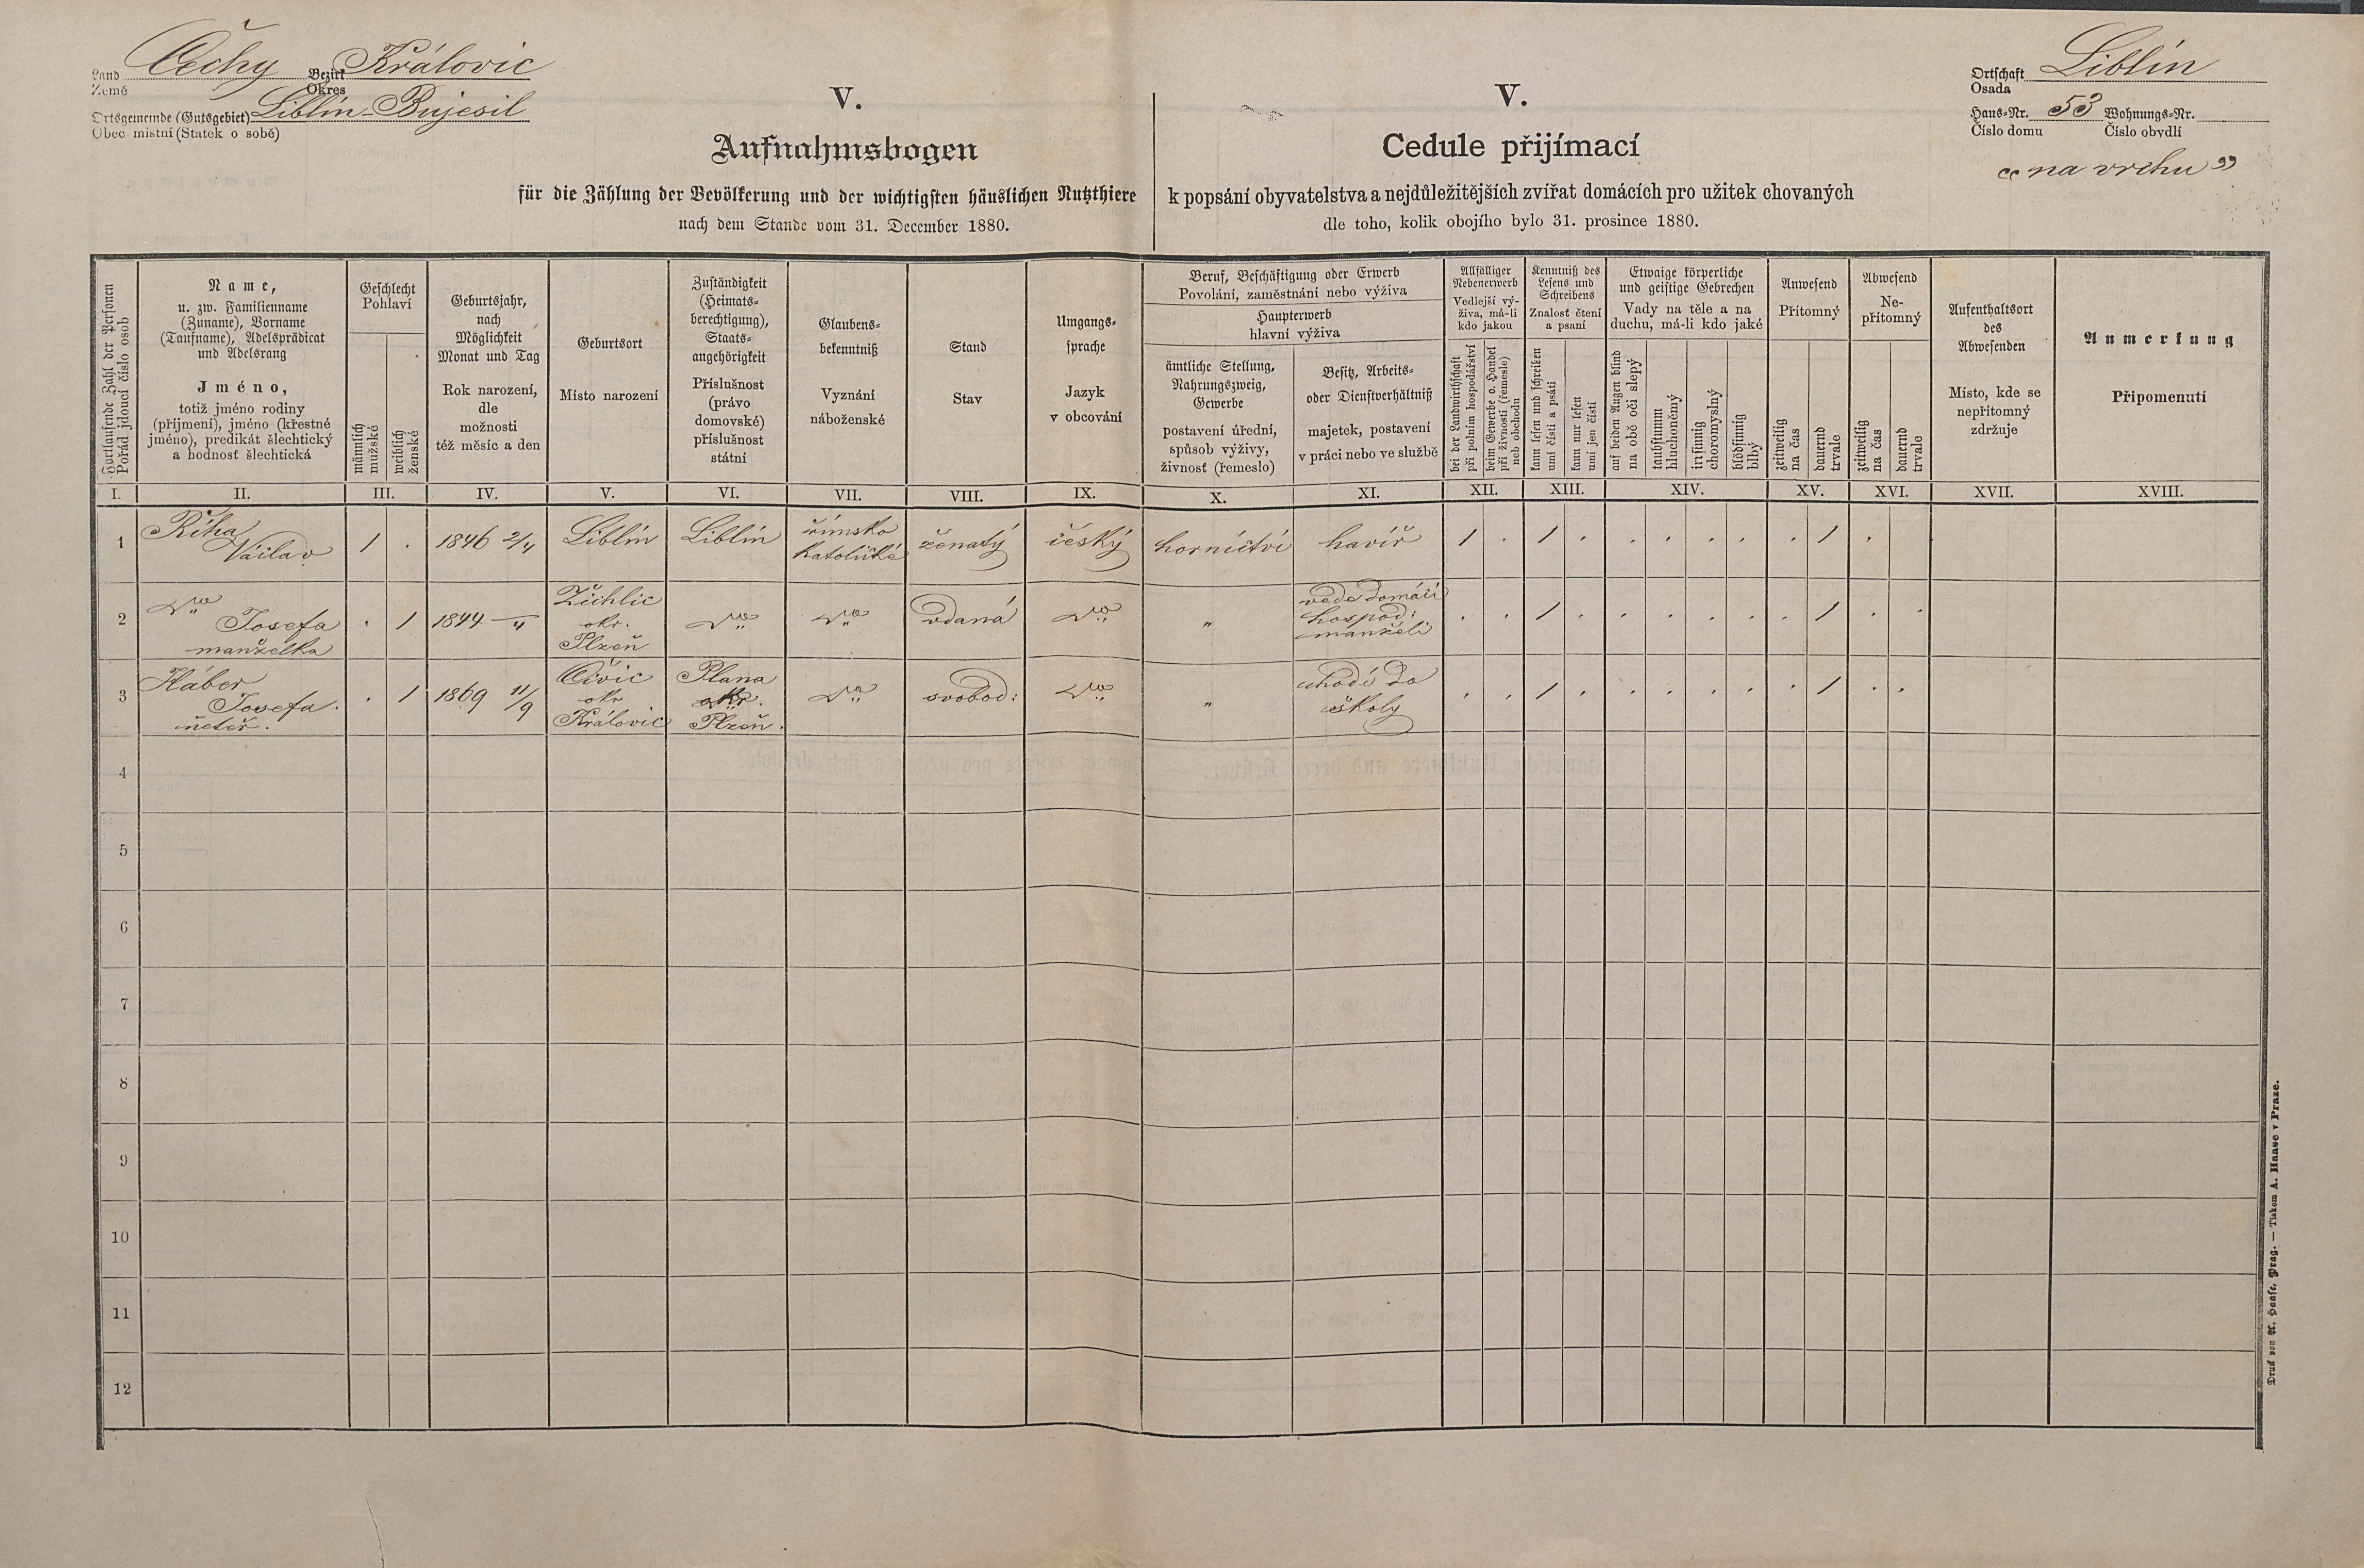 Land Čechy Bezirk Královic
Země Okres
Ortsgemeinde (Gutsgebiet) Liblín-Bujesil
Obec místní (Statek o sobě)
V.
Aufnahmsbogen
für die Zählung der Bevölkerung und der wichtigsten häuslichen Nutzthiere
nach dem Stande vom 31. December 1880.
V.
Cedule přijímací
k popsání obyvatelstva a nejdůležitějších zvířat domácích pro užitek chovaných
dle toho, kolik obojího bylo 31. prosince 1880.
Ortschaft Liblín
Osada
Haus-Nr. 53 Wohnungs-Nr.
Číslo domu Číslo obydlí
„na vrchu"
Fortlaufende Zahl der Personen
Pořád jdoucí číslo osob
Name,
u. zw. Familienname
(Zuname), Vorname
(Taufname), Adelsprädicat
und Adelsrang
Jméno,
totiž jméno rodiny
(příjmení), jméno (křestné
jméno), predikát šlechtický
a hodnosť šlechtická
Geschlecht
Pohlaví
männlich
mužské
weiblich
ženské
Geburtsjahr,
nach
Möglichkeit
Monat und Tag
Rok narození,
dle
možnosti
též měsíc a den
Geburtsort
Místo narození
Zuständigkeit
(Heimats-
berechtigung),
Staats-
angehörigkeit
Příslušnost
(právo
domovské)
příslušnost
státní
Glaubens-
bekenntniß
Vyznání
náboženské
Stand
Stav
Umgangs-
sprache
Jazyk
v obcování
Beruf, Beschäftigung oder Erwerb
Povolání, zaměstnání nebo výživa
Haupterwerb
hlavní výživa
ämtliche Stellung,
Nahrungszweig,
Gewerbe
postavení úřední,
spůsob výživy,
živnosť (řemeslo)
Besitz, Arbeits-
oder Dienstverhältniß
majetek, postavení
v práci nebo ve službě
Allfälliger
Nebenerwerb
Vedlejší vý-
živa, má-li
kdo jakou
bei der Landwirthschaft
při polním hospodářství
beim Gewerbe o. Handel
při živnosti (řemesle)
neb obchodu
Kenntniß des
Lesens und
Schreibens
Znalosť čtení
a psaní
kann lesen und schreiben
umí čísti a psáti
kann nur lesen
umí jen čísti
Etwaige körperliche
und geistige Gebrechen
Vady na těle a na
duchu, má-li kdo jaké
auf beiden Augen blind
na obě oči slepý
taubstumm
hluchoněmý
irrsinnig
choromyslný
blödsinnig
blbý
Anwesend
Přítomný
zeitweilig
na čas
dauernd
trvale
Abwesend
Ne-
přítomný
zeitweilig
na čas
dauernd
trvale
Aufenthaltsort
des
Abwesenden
Místo, kde se
nepřítomný
zdržuje
Anmerkung
Připomenutí
I. II. III. IV. V. VI. VII. VIII. IX. X. XI. XII. XIII. XIV. XV. XVI. XVII. XVIII.
1 Říha Václav 1 . 1846 2/4 Liblín Liblín římsko katolické ženatý český hornictví havíř 1 . 1 . . . . . . 1 .
2 Josefa manželka . 1 1844 –/4 Žichlic okr. Plzeň vdaná „ vede domácí hospod: manželi . . 1 . . . . . . 1 . .
3 Háber Josefa. neteř. . 1 1869 11/9 Čivic okr Královic Plana okr. Plzeň. svobod: „ chodí do školy . . 1 . . . . . . 1 . .
4
5
6
7
8
9
10
11
12
Druck von A. Haase, Prag. — Tiskem A. Haase v Praze.